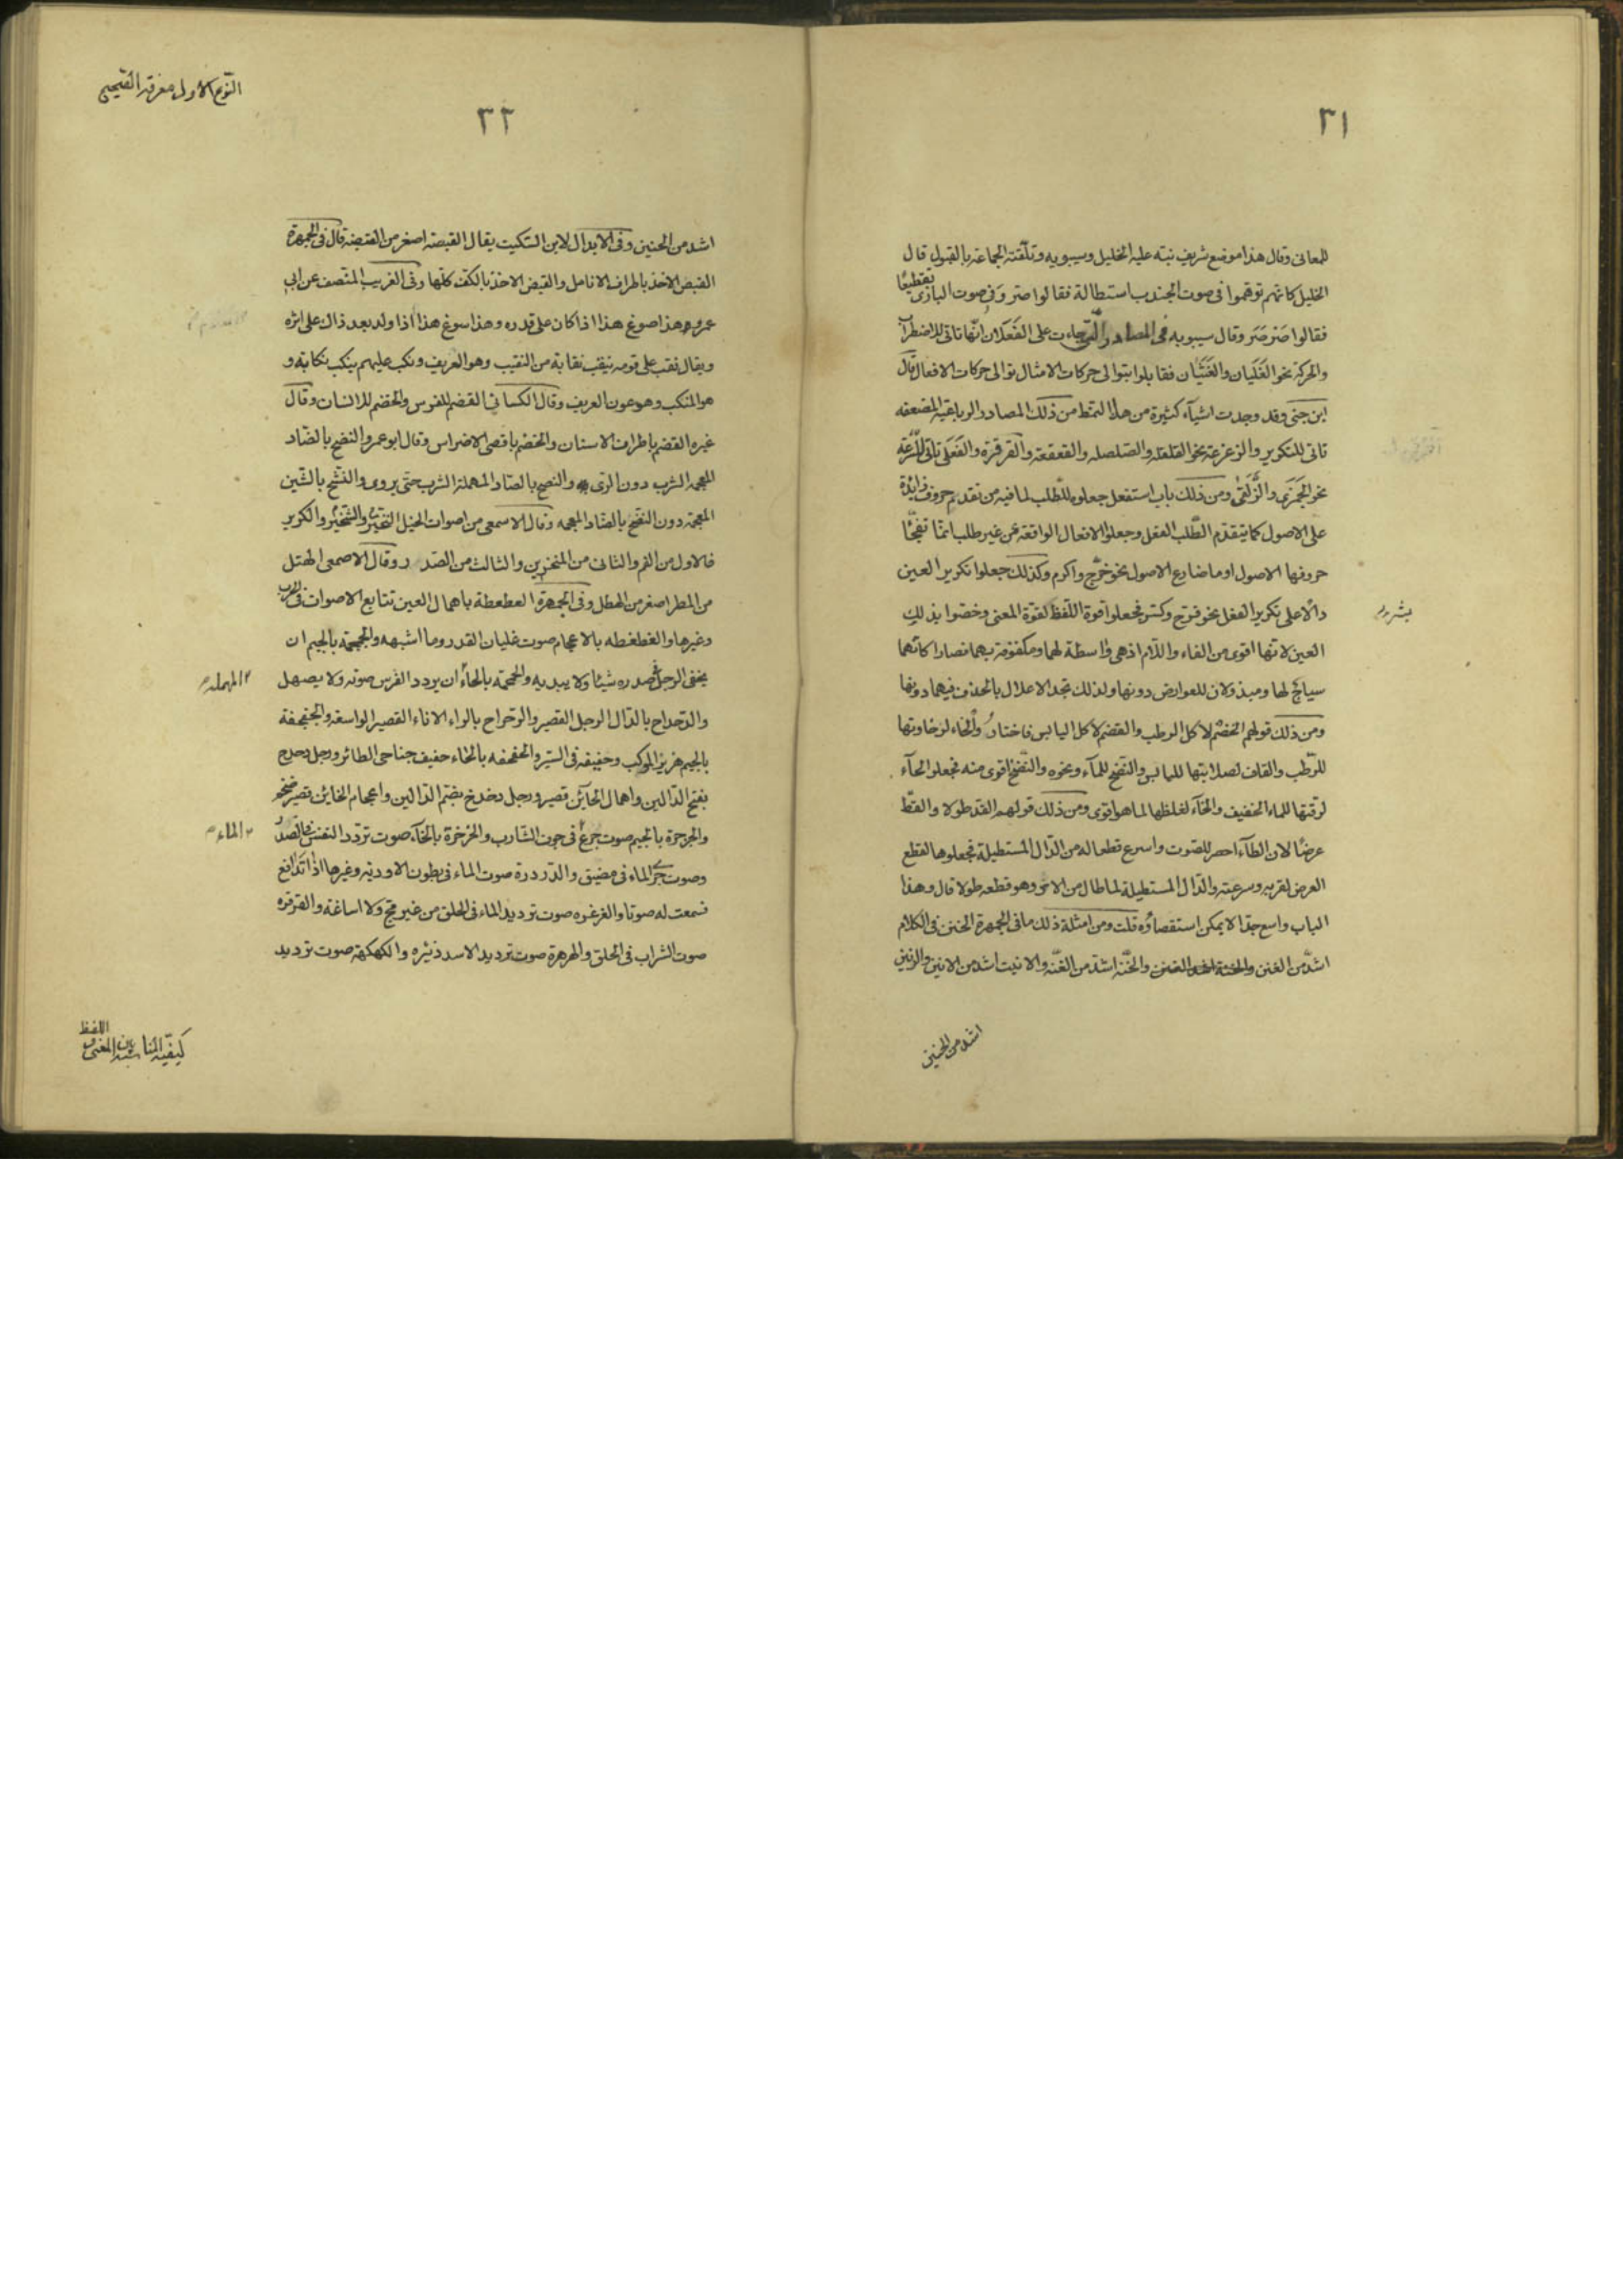 ٣١
للمعانى وقال هذا موضع شريف نبّه عليه الخليل وسيبويه وتلقّته الجماعة بالقبول قال
الخليل كانهم توهّموا فى صوت الجندب استطالة فقالوا صرّ وفى صوت البازى تقطيعًا
فقالوا صَرْصَرَ وقال سيبويه فى المصادر الّتى جاءت على الفَعَلان انّها تاتى للاضطراب
والحركة نحو الغَلَيان والغَثَيان فقابلوا بتوالى حركات الامثال توالى حركات الافعال قال
ابن جنى وقد وجدت اشيآء كثيرة من هذا النمط من ذلك المصادر الرباعيّة المضعفه
تاتى للتكرير والزعزعة نحو القلقله والصلصله والقعقعة والقرقرة والفَعَلَى تاتى للسّرعة
نحو الجَمَزَى والزَّلَقَى ومن ذلك باب استفعل جعلوه للطّلب لما فيه من تقدم حروف زائدة
على الاصول كما يتقدّم الطّلب الفعل وجعلوا الافعال الواقعة عن غير طلب انمّا تفجّأ
حروفها الاصول او ما ضارع الاصول نحو خرّج واكرم وكذلك جعلوا تكرير العين
دالًا على تكرير الفعل نحو فرّح وكسّر فجعلوا قوة اللّفظ لقوّة المعنى وخصّوا بذلك
العين لانّها اقوى من الفاء واللّام اذ هى واسطة لهما ومكفوفة بهما فصارا كانّهما
سياج لها ومبذولان للعوارض دونها ولذلك تجد الاعلال بالحذف فيهما دونها
ومن ذلك قولهم الخضم لاكل الرطب والقضم لاكل اليابس فاختاروا الخاء لرخاوتها
للرّطب والقاف لصلابتها لليابس والنّضح للمآء ونحوه والنّضخ اقوى منه فجعلوا الحآء
لرقتها للماء الخفيف والخآء لغلظها لما هو اقوى ومن ذلك قولهم القدّ طولا والقطّ
عرضًا لان الطآء احصر للصّوت واسرع قطعا له من الدّال المستطيلة فجعلوها لقطع
العرض لقربه وسرعته والدّال المستطيلة لما طال من الاثر وهو قطعه طولا قال وهذا
الباب واسع جدّا لا يمكن استقصاؤه قلت ومن امثلة ذلك ما فى الجمهرة الخنن فى الكلام
اشدّ من الغنن والخنّة اشدّ من الغنّة والانيت اشد من الانين والرنين
اشد من الحنين
بشرور
٣٢
النّوع الاول معرفة الصّحيح
اشد من الحنين وفى الابدال لابن السّكيت يقال القبصة اصغر من القبضة قال فى الجمهرة
القبص الاخذ باطراف الانامل والقبض الاخذ بالكفّ كلّها وفى الغريب المتّصف عن ابى
عمرو هذا صوغ هذا اذا كان على قدره وهذا سوغ هذا اذا ولد بعد ذاك على اثره
ويقال نقب على قومه ينقب نقابة من النقيب وهو العريف ونكب عليهم ينكب نكابة و
هو المنكب وهو عون العريف وقال الكسائى القضم للفرس والخضم للانسان وقال
غيره القضم باطراف الاسنان والخضم باقصى الاضراس وقال ابو عمرو النضح بالضّاد
المعجمه الشرب دون الرّى والنصح بالصّاد المهملة الشرب حتى يروى والنّشح بالشّين
المعجمة دون النّضح بالضّاد المعجمه وقال الاصمعى من اصوات الخيل النّخير والشّخير والكرير
فالاول من الفم والثانى من المنخرين والثالث من الصّدر وقال الاصمعى الهتل
من المطر اصغر من الهطل وفى الجمهرة العطعطة باهمال العين تتابع الاصوات فى الحرب
وغيرها والغطغطه بالاعجام صوت غليان القدر وما اشبهه والجمجمة بالجيم ان
يخفى الرجل فى صدره شيئا ولا يبديه والحمحمة بالحاء ان يردد الفرس صوته ولا يصهل
المهمله
والدّحداح بالدّال الرجل القصير والرّحراح بالراء الاناء القصير الواسعة والجفجفة
بالجيم هزيز الموكب وحفيفه فى السّير والخفخفه بالخاء حفيف جناحى الطائر ورجل دحدح
بفتح الدّالين واهمال الحآئن قصير ورجل دخدخ بضمّ الدّالين واعجام الخاين قصير ضخم
والجرجرة بالجيم صوت جَرْع فى جوف الشّارب والخرخرة بالخآء صوت تردّد النفس فى الصّدر
الماء
وصوت جَرْى الماء فى مضيق والدّردرة صوت الماء فى بطون الاودية وغيرها اذا تدافع
فسمعت له صوتا والغرغره صوت ترديد الماء فى الحلق من غير مجّ ولا اساغة والقرقرة
صوت الشراب فى الحلق والهرهرة صوت ترديد الاسد زئيره والكهكهة صوت ترديد
كيفيّة المناسبة بين اللفظ والمعنى